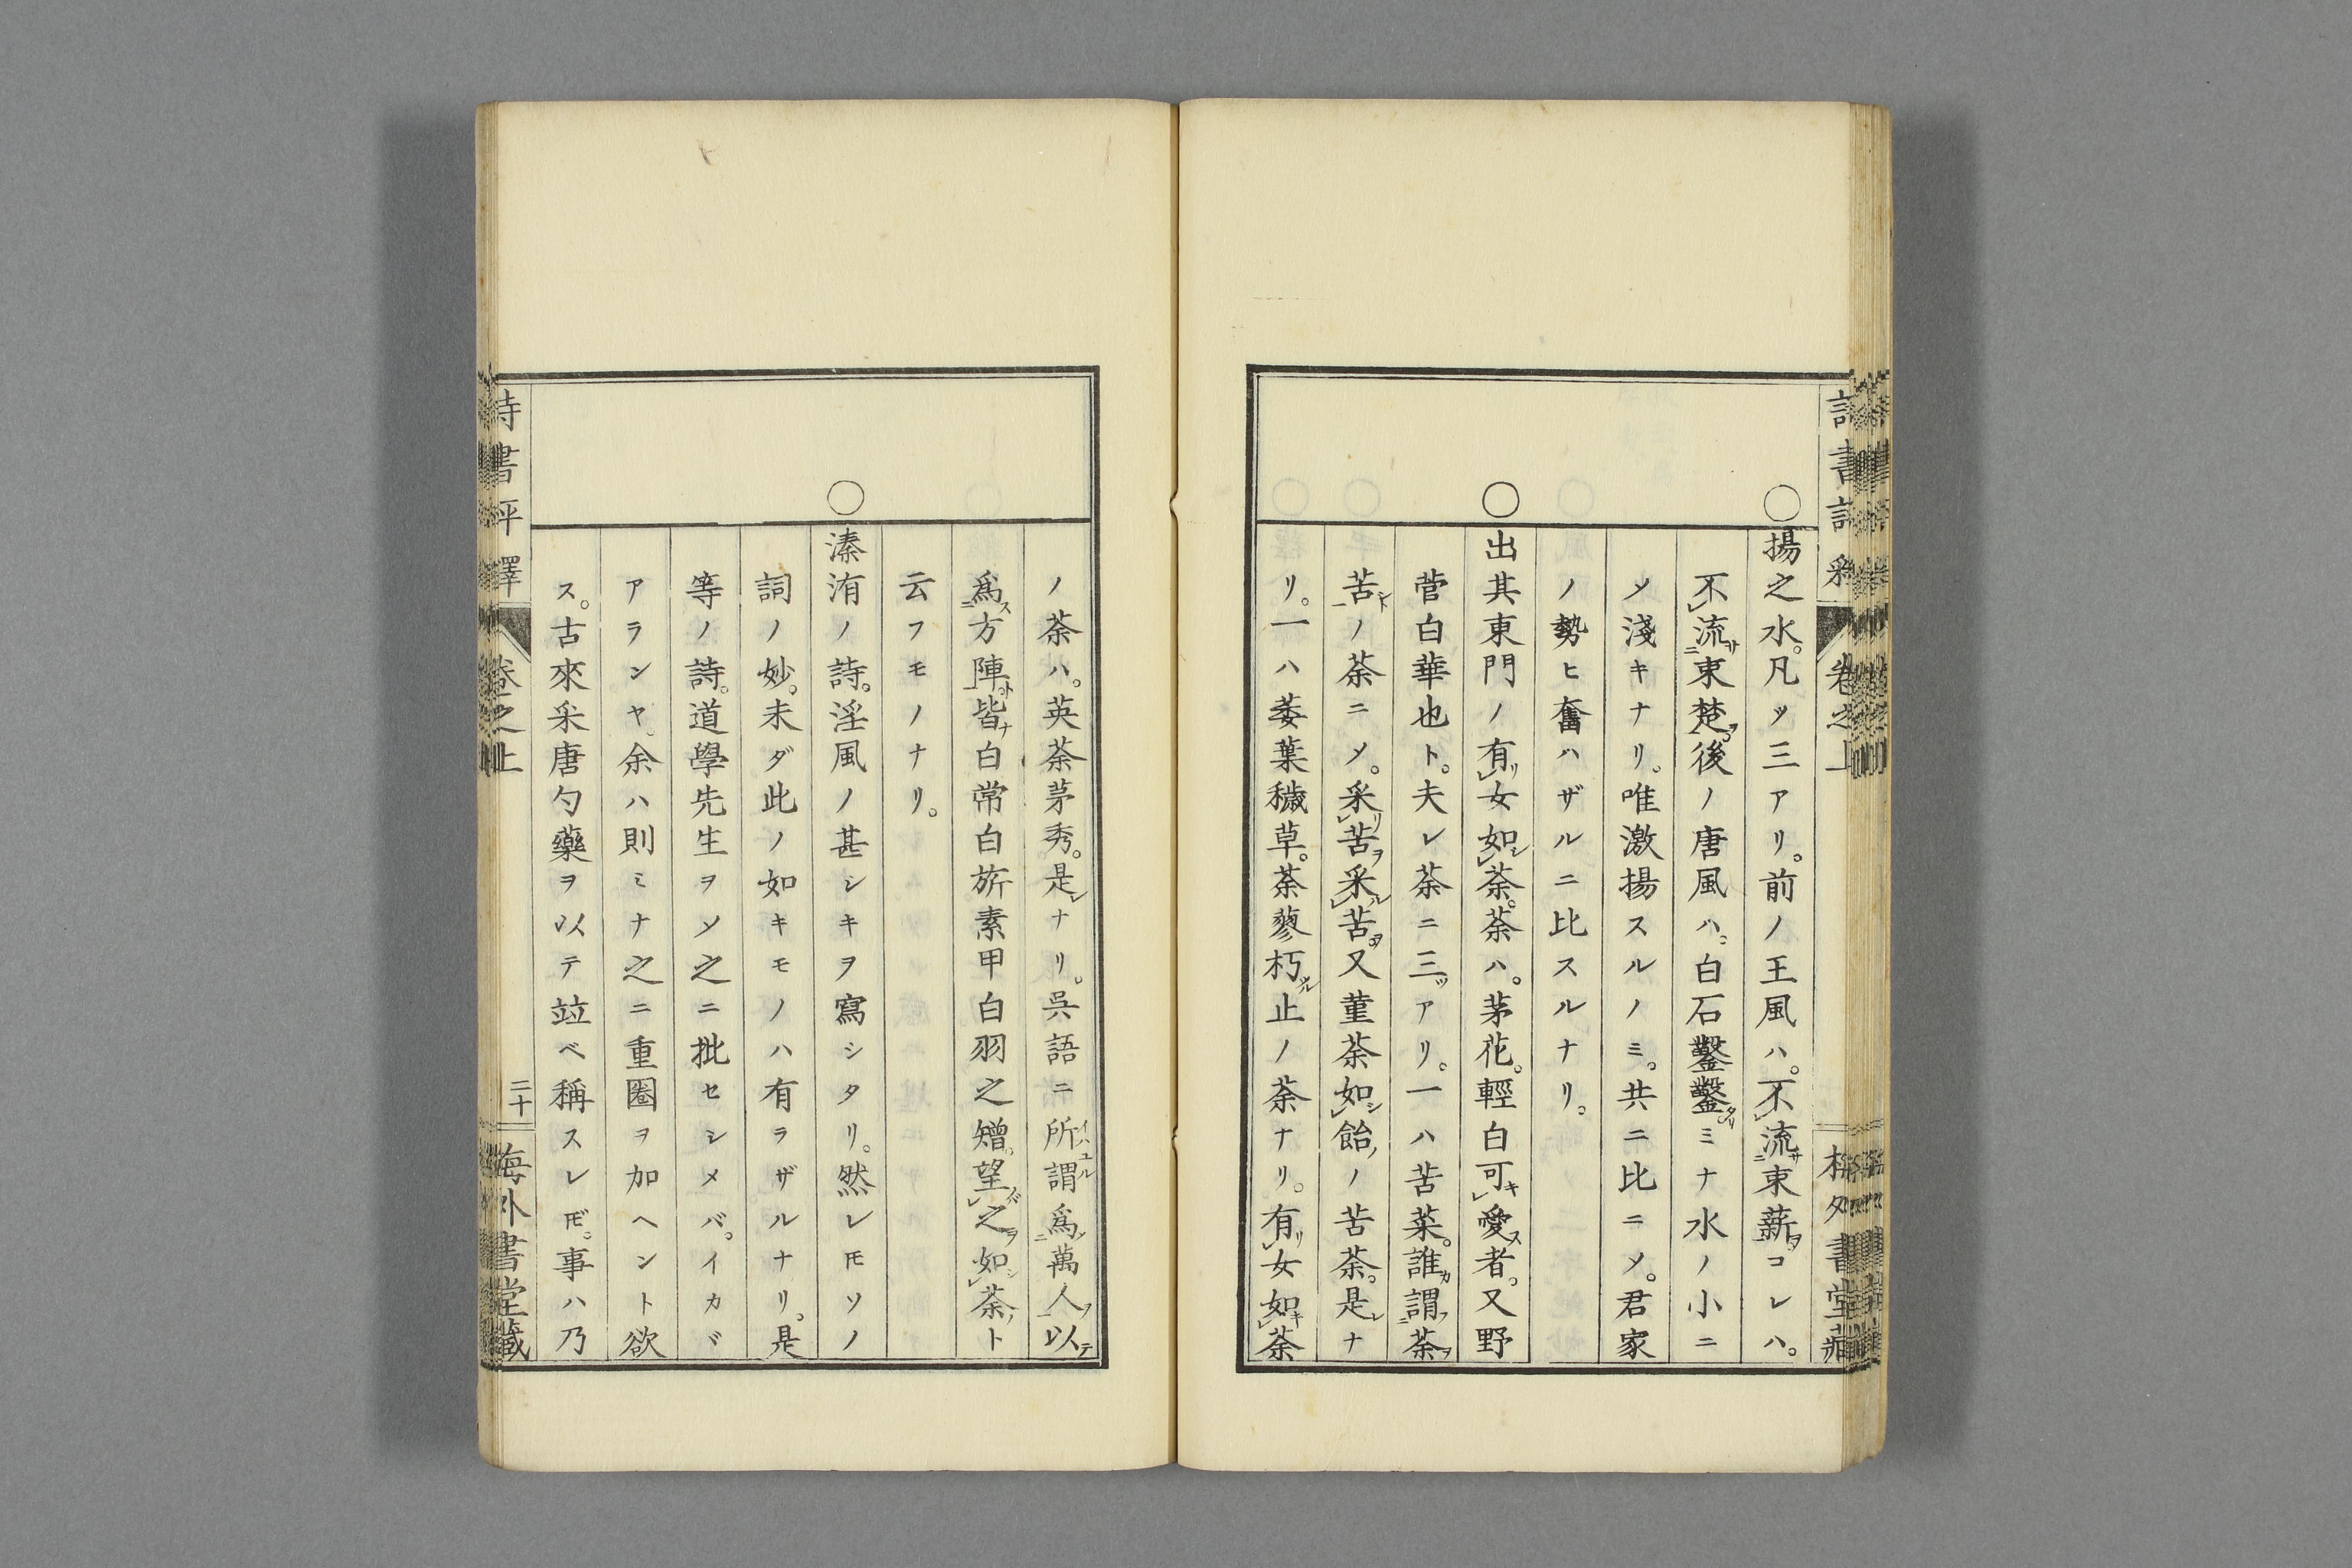 揚之水。凡ソ三アリ。前ノ王風ハ。不流束薪コレハ。
不流束楚後ノ唐風ハ。白石鑿鑿ミナ水ノ小ニ
メ淺キナリ。唯激揚スルノミ。共ニ比ニメ。君家
ノ勢ヒ奮ハザルニ比スルナリ。
出其東門ノ有女如荼。荼ハ。茅花。輕白可愛者。又野
菅白華也ト。夫レ荼ニ三アリ。一ハ苦菜。誰謂荼
苦ノ荼ニメ。采苦采苦又菫荼如飴ノ苦荼。是ナ
リ。一ハ委葉穢草。荼蓼朽止ノ荼ナリ。有女如荼
ノ荼ハ。英荼茅秀。是ナリ。呉語ニ所謂爲萬人以
爲方陣。皆白常白旂素甲白羽之矰。望之如荼ト
云フモノナリ。
溱洧ノ詩。淫風ノ甚シキヲ寫シタリ。然レ𪜈ソノ
詞ノ妙。未ダ此ノ如キモノハ有ラザルナリ。是
等ノ詩。道學先生ヲメ之ニ批セシメバ。イカヾ
アランヤ。余ハ則ミナ之ニ重圈ヲ加ヘント欲
ス。古來采唐勺藥ヲ以テ竝ベ稱スレ𪜈。事ハ乃
詩書評釋
卷之上
二十
海外書堂藏